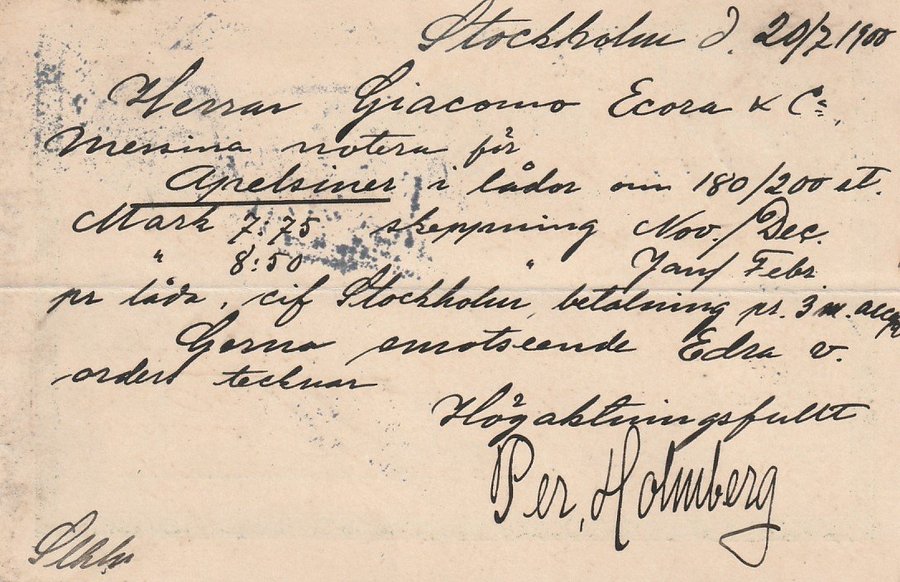 Stockholm d. 20/7 1900
Herrar Giacomo Ecora & Co.,
Messina notera för
Apelsiner i lådor om 180/200 st.
Mark 7,75 skeppning Nov./Dec.
" 8:50 " Jan/Febr
pr låda, cif Stockholm, betalning pr. 3 m. accept
Gerna emotseende Edra v.
orders tecknar
Högaktningsfullt
Per, Holmberg